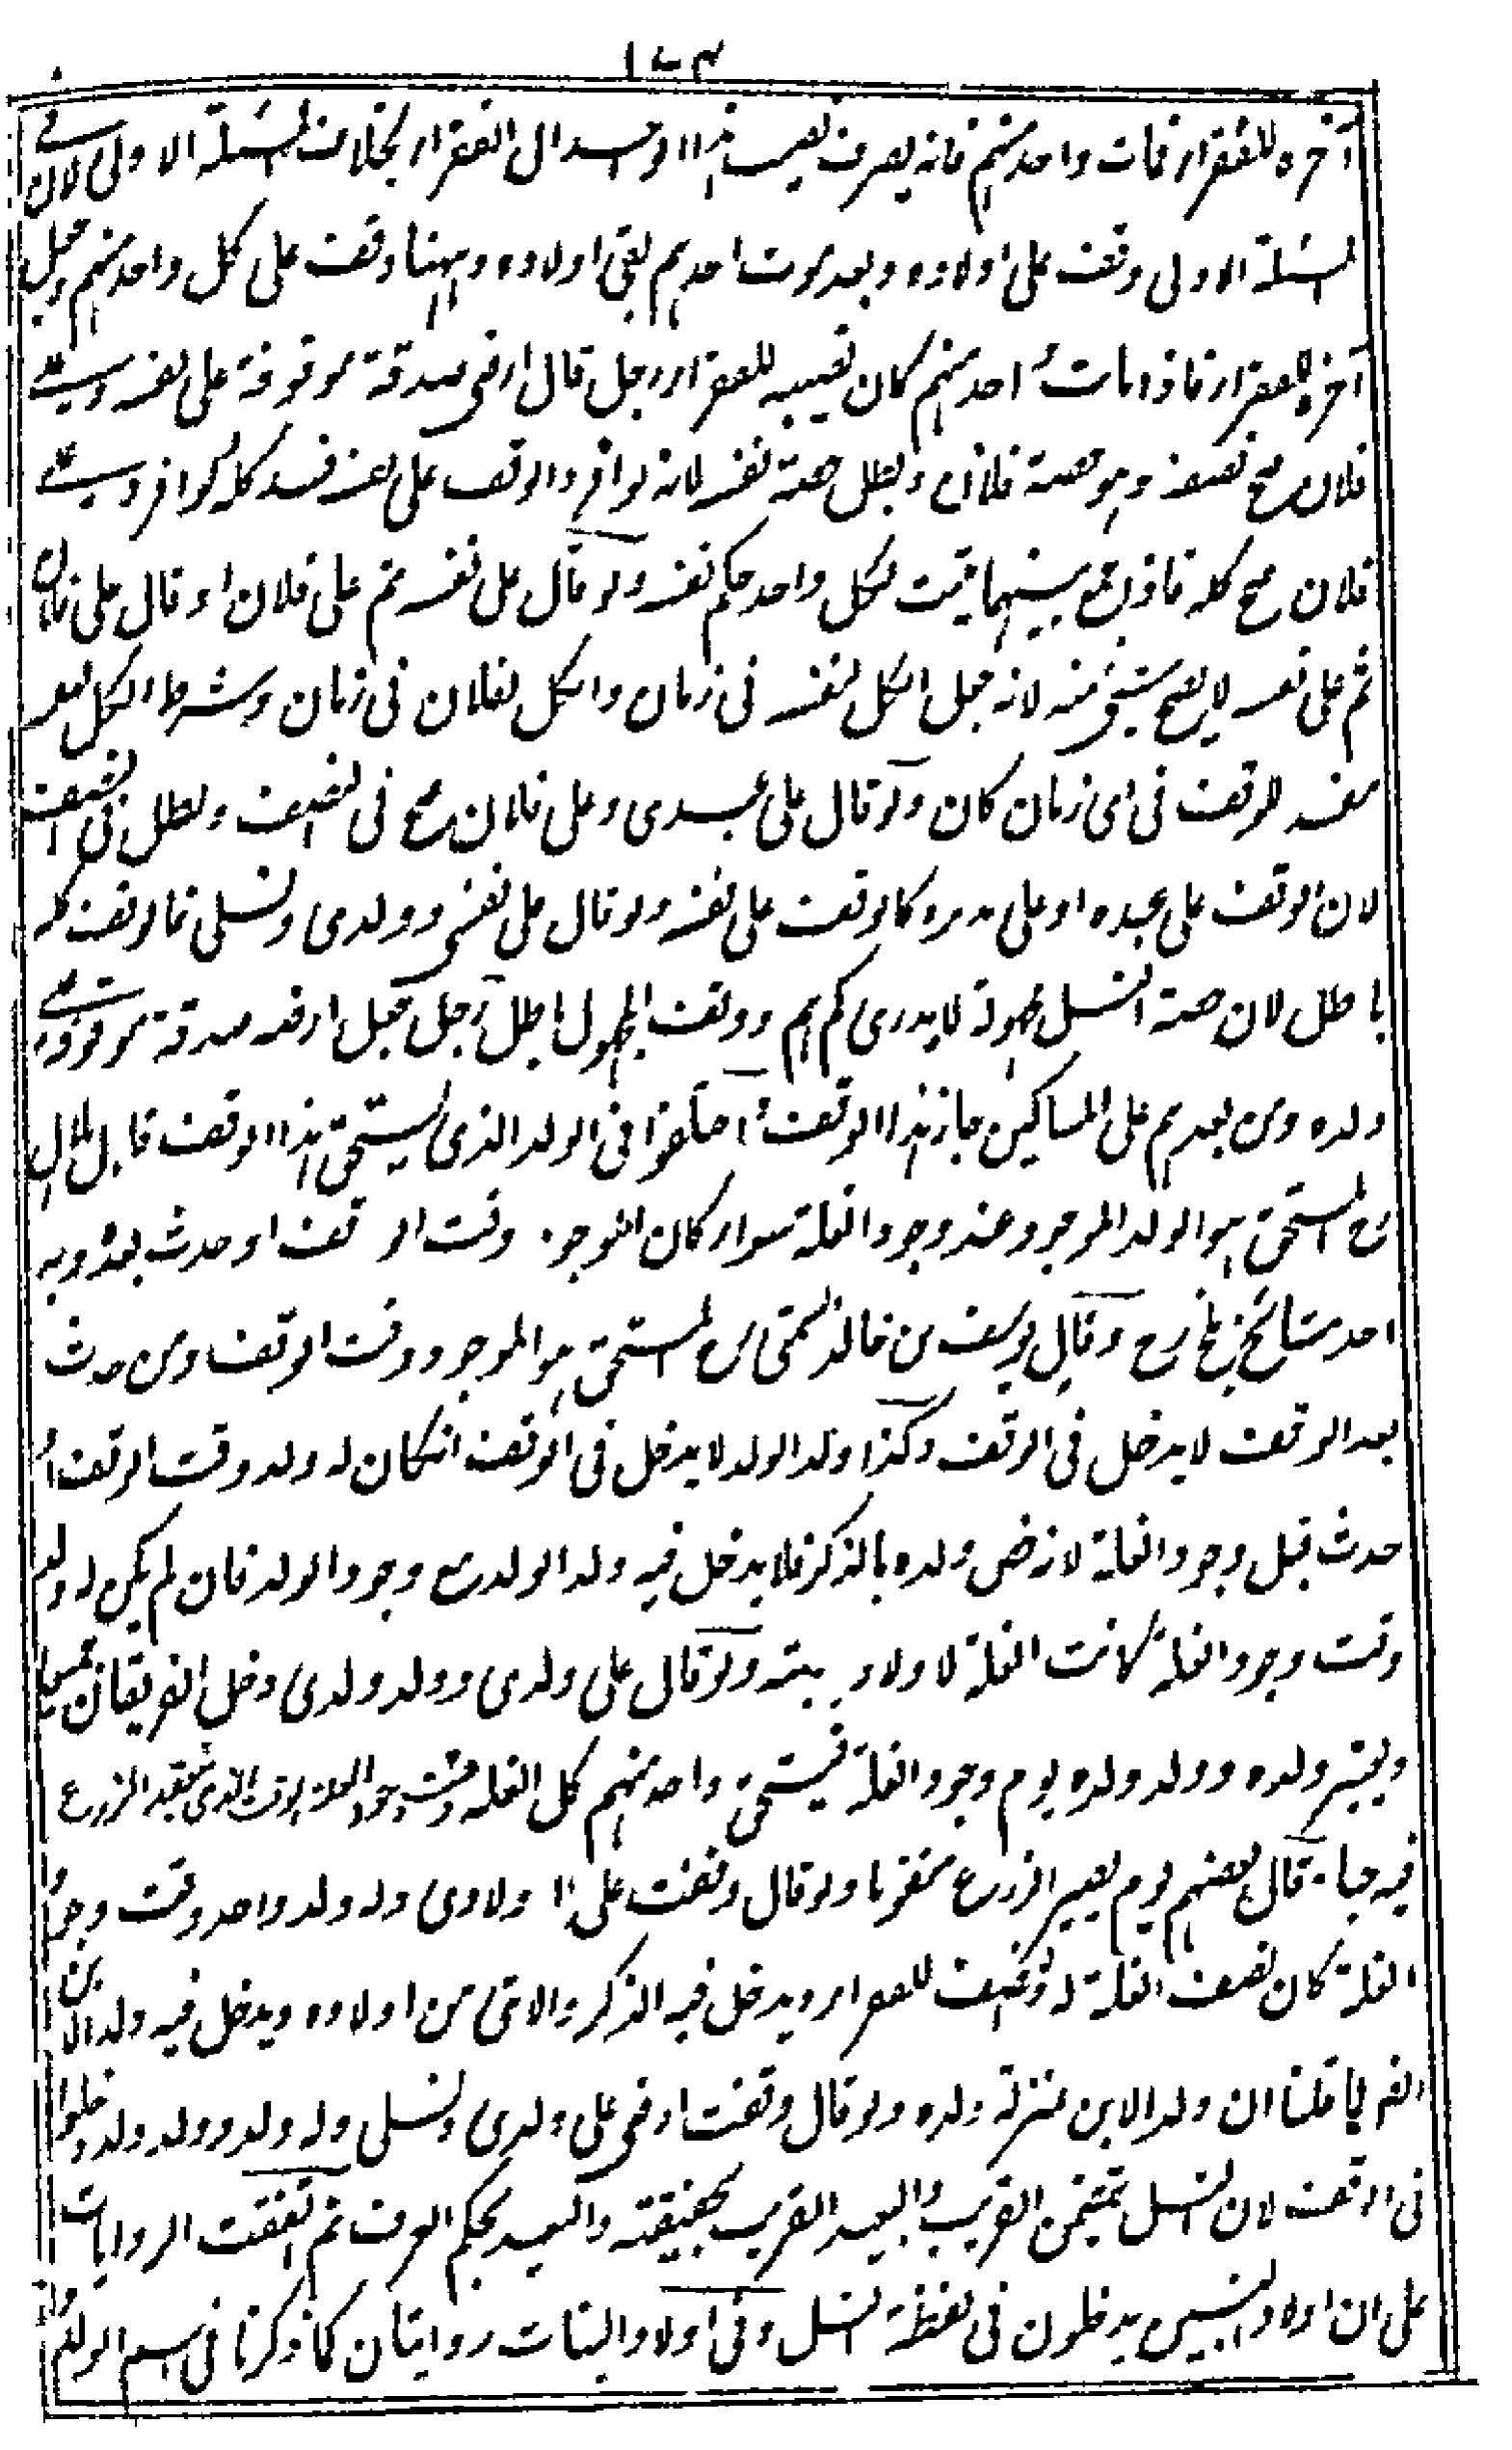 ١٧٣
آخره للفقراء فمات واحد منهم فانه يصرف نصيب هذا الواحد الى الفقراء بخلاف المسئلة الاولى لان في
المسئلة الاولى وقف على اولاده وبعد موت احدهم بقى اولاده وههنا وقف على كل واحد منهم وجعل
آخره للفقراء فاذا مات احد منهم كان نصيبه للفقراء رجل قال ارضى صدقة موقوفة على نفسه وعلى
فلان صح نصفه وهو حصة فلان وبطل حصة نفسه لانه لو افرد الوقف على نفسه فسد كله ولو افرد على
فلان صح كله فاذا جمع بينهما يثبت لكل واحد حكم نفسه ولو قال على نفسه ثم على فلان او قال على فلان
ثم على نفسه لا يصح شيئ منه لانه جعل الكل لنفسه فى زمان والكل لفلان فى زمان وشرط الكل لنفسه
يفسد الوقف فى اى زمان كان ولو قال على عبدى وعلى فلان صح فى النصف وبطل فى النصف
لان الوقف على عبده او على مدبره كالوقف على نفسه ولو قال على نفسى وولدى ونسلى فالوقف كله
باطل لان حصة النسل مجهولة لا يدرى كم هم ووقف المجهول باطل رجل جعل ارضه صدقة موقوفة على
ولده ومن بعدهم على المساكين جاز هذا الوقف اختلفوا فى الولد الذى يستحق هذا الوقف قال هلال
رح المستحق هو الولد الموجود عند وجود الغلة سواء كان الموجود وقت الوقف او حدث بعده وبه
اخذ مشائخ بلخ رح وقال يوسف بن خالد السمتى رح المستحق هو الموجود وقت الوقف ومن حدث
بعد الوقف لا يدخل فى الوقف وكذا ولد الولد لا يدخل فى الوقف انكان له ولد وقت الوقف او
حدث قبل وجود الغلة لانه خص ولده بالذكر فلا يدخل فيه ولد الولد مع وجود الولد فان لم يكن له ولد
وقت وجود الغلة كانت الغلة لاولاد بنيه ولو قال على ولدى وولد ولدى دخل الفريقان جميعا
ويعتبر ولده وولد ولده يوم وجود الغلة فيستحق واحد منهم كل الغلة وقت وجود الغلة الوقت الذى ينعقد الزرع
فيه حبا قال بعضهم يوم يصير الزرع متقوما ولو قال وقفت على اولادى وله ولد واحد وقت وجود
الغلة كان نصف الغلة له والنصف للفقراء ويدخل فيه الذكر والانثى من اولاده ويدخل فيه ولد الابن
ايضا لما قلنا ان ولد الابن بمنزلة ولده ولو قال وقفت ارضى على ولدى ونسلى وله ولد وولد ولد دخلوا
فى الوقف لان النسل يتضمن القريب والبعيد القريب بحقيقته والبعيد بحكم العرف ثم اتفقت الروايات
على ان اولاد البنين يدخلون فى لفظة النسل وفى اولاد البنات روايتان كما ذكرنا فى اسم الولد